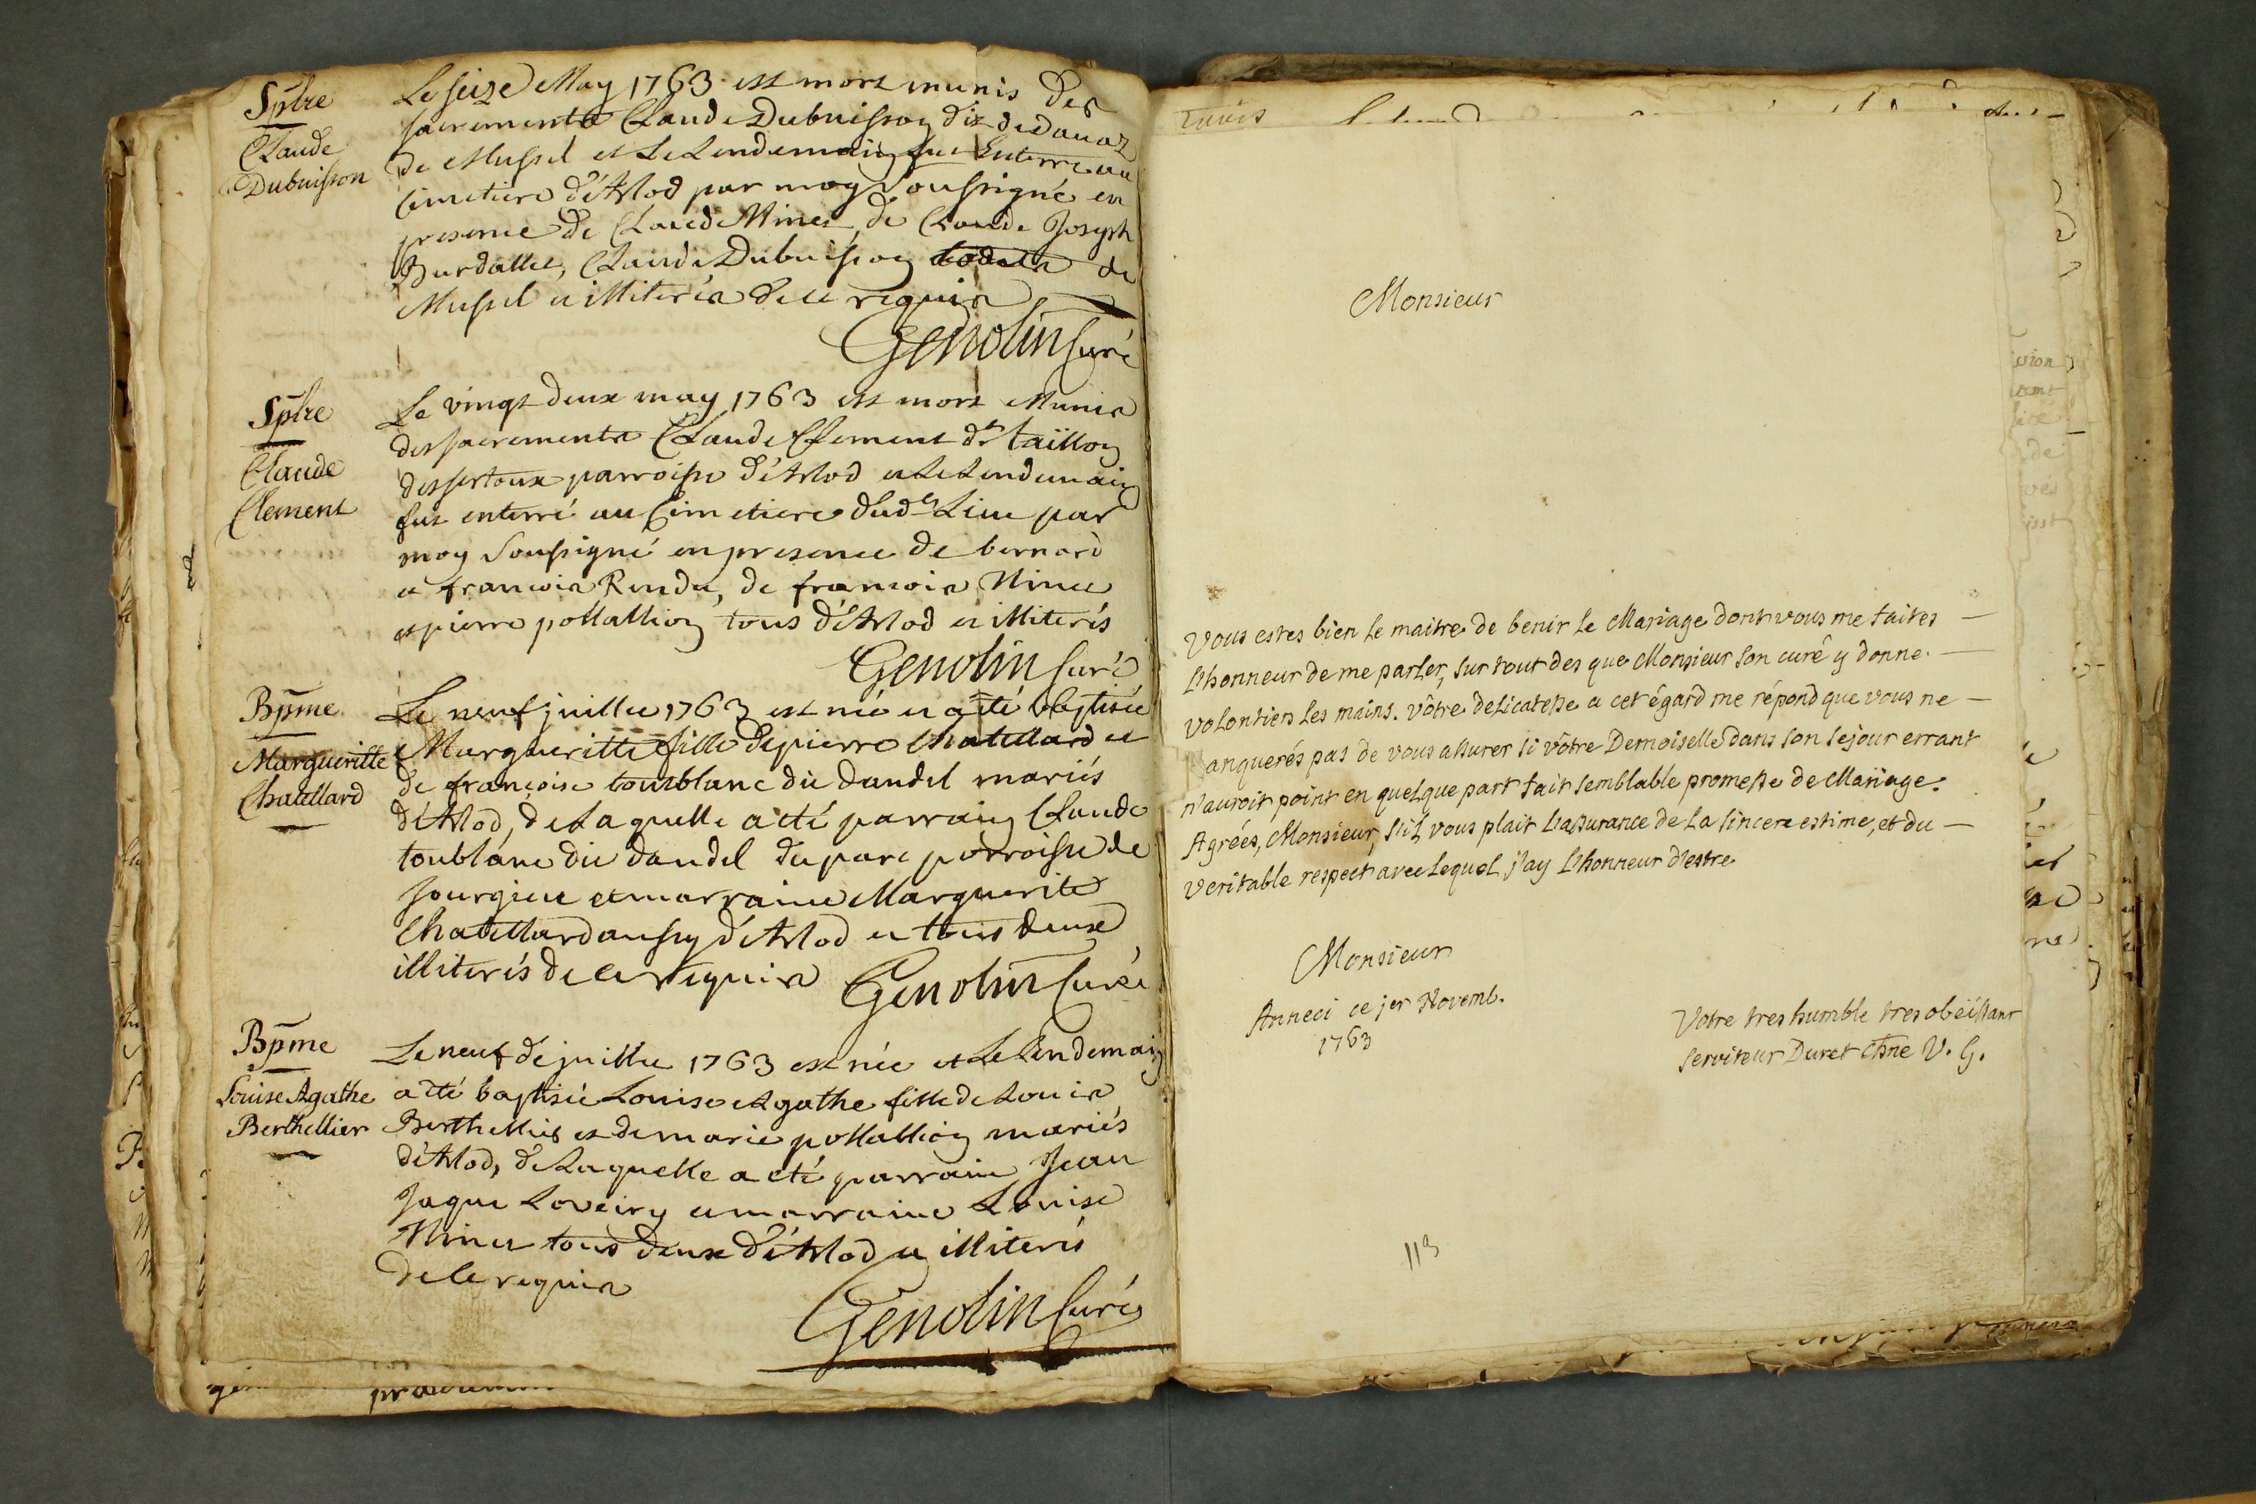 Spltre
Claude
Dubuisson
Le seize May 1763 est mort munis des
sacrements Claude Dubuisson dit
de Mussel et Le Lendemain fut Enterré au
Cimetiere d'Arlod par moy Soussigné en
presence de Claude Ninet, de Claude Joseph
Burdallet, Claude Dubuisson de
Mussel et illiterés de ce requis
Genolin Curé
Spltre
Claude
Clement
Le vingt deux may 1763 est mort Munis
des sacrements Claude Clement dt taillon
dessertoux parroisse d'Arlod et Le Lendemain
fut enterré au Cimetiere dudt Lieu par
moy Soussigné en presence de bernard
et francois Rendu, de francois Ninet
et pierre pollallion tous d'Arlod et illiterés
Genolin Curé
Bpme
Margueritte
Chatellard
Le neuf juillet 1763 est née et a été baptisée
Margueritte fille de pierre Chatellard et
de francoise tourblanc dit dandel mariés
d'Arlod, de Laquelle a été parrain Claude
toublanc dit dandel du parc parroisse de
Sourgieu et marraine Marguerite
Chatellard aussy d'Arlod et tous deux
illiterés de ce requis Genolin Curé
Bpme
Louise Agathe
Berthellier
Le neuf de juillet 1763 est née et Le Lendemain
a été baptisée Louise Agathe fille de Louis
Berthellier et de marie pollallion mariés
d'Arlod, de Laquelle a eté parrain Jean
Jaque Loveiry et marraine Louise
Ninet tous deux d'Arlod et illiterés
de ce requis
Genolin Curé
Monsieur
Vous estes bien le maitre de benir le Mariage dont vous me faites
L'honneur de me parler, sur tout des que Monsieur son curé y donne
volontiers les mains. vôtre delicatesse a cet égard me répond que vous ne
manquerés pas de vous assurer si vôtre Demoiselle dans son sejour errant
n'auroit point en quelque part fait semblable promesse de Mariage.
Agrées, Monsieur, s'il vous plait L'assurance de La sincere estime, et du
veritable respect avec Lequel j'ay L'honneur d'estre
Monsieur
Anneci ce jer Novemb.
1763
Votre tres humble tres obeissant
serviteur Duret chne V. G.
113